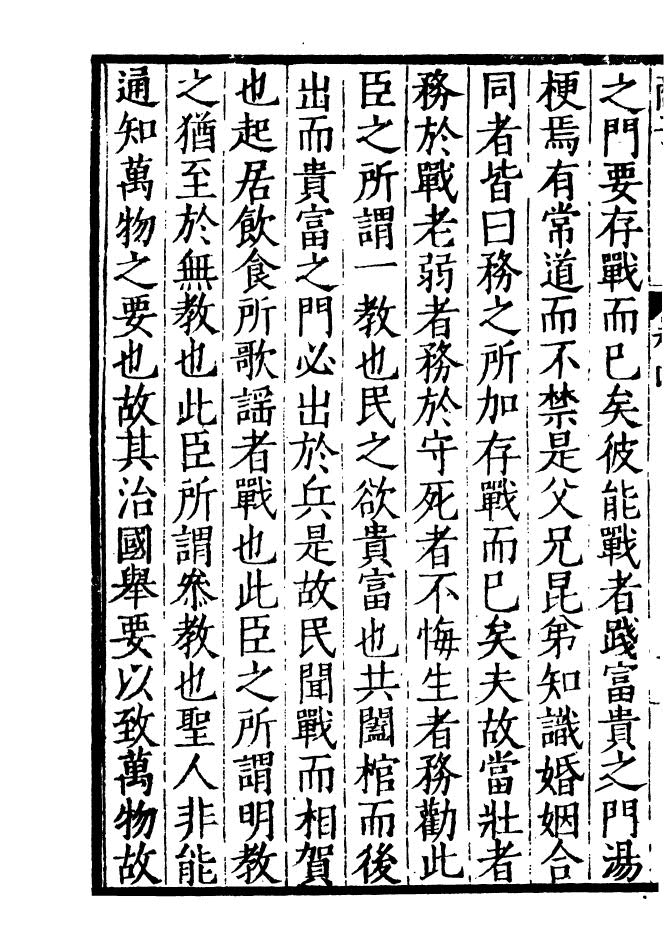 之門要存戰而巳矣彼能戰者踐富貴之門湯
梗焉有常道而不禁是父兄昆弟知識婚姻合
同者皆曰務之所加存戰而巳矣夫故當壯者
務於戰老弱者務於守死者不悔生者務勸此
臣之所謂一教也民之欲貴富也共闔棺而後
出而貴富之門必出於兵是故民聞戰而相賀
也起居飲食所歌謠者戰也此臣之所謂明教
之猶至於無教也此臣所謂叅教也聖人非能
通知萬物之要也故其治國舉要以致萬物故